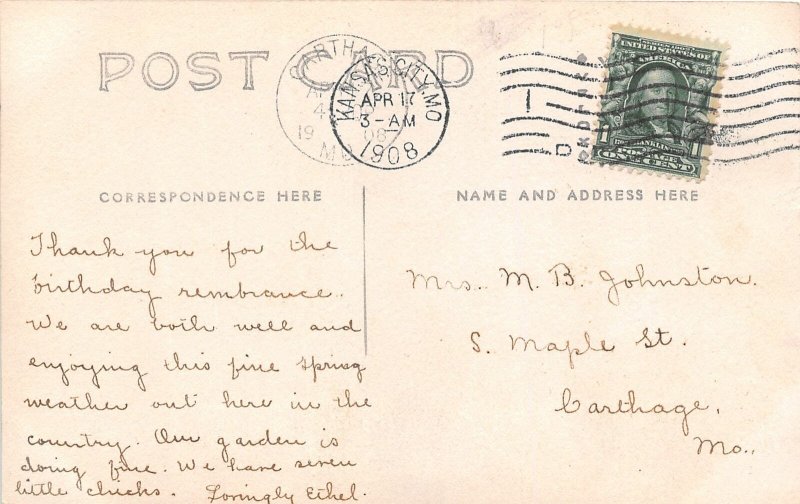 POST CARD
CARTHAGE
AP
4
19 08
MO
KANSAS CITY, MO
APR 17
3-AM
1908
1
D
SERIES 1902
UNITED STATES OF
AMERICA
FRANKLIN
1 POSTAGE 1
ONE CENT
CORRESPONDENCE HERE
NAME AND ADDRESS HERE
Thank you for the
birthday rembrance.
We are both well and
enjoying this fine spring
weather out here in the
country. Our garden is
doing fine. We have seven
little chicks. Lovingly Ethel.
Mrs. M. B. Johnston.
S. Maple St.
Carthage,
Mo.,